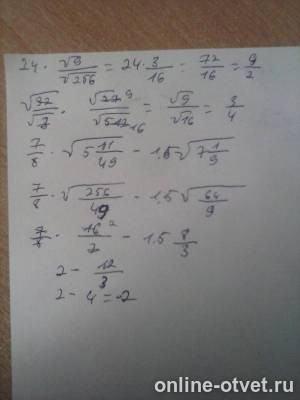 24 · √9/√256 = 24 · 3/16 = 72/16 = 9/2
√32/√3 · √27 9/√512 16 = √9/√16 = 3/4
7/8 · √(5 11/49) - 1,5√(7 1/9)
7/8 · √(256/49) - 1,5√(64/9)
7/8 · 16 2/7 - 1.5 8/3
2 - 12/3
2 - 4 = -2
online-otvet.ru